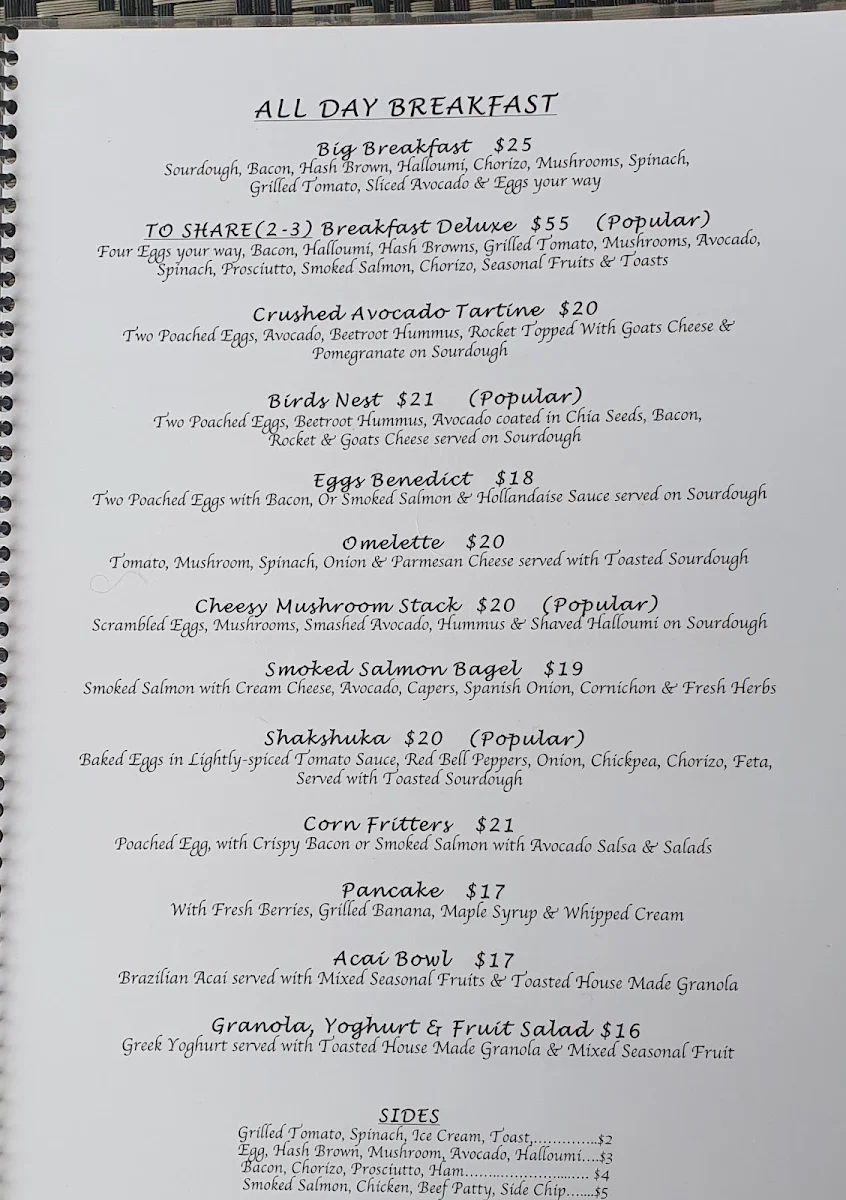 ALL DAY BREAKFAST
Big Breakfast $25
Sourdough, Bacon, Hash Brown, Halloumi, Chorizo, Mushrooms, Spinach,
Grilled Tomato, Sliced Avocado & Eggs your way
TO SHARE(2-3) Breakfast Deluxe $55 (Popular)
Four Eggs your way, Bacon, Halloumi, Hash Browns, Grilled Tomato, Mushrooms, Avocado,
Spinach, Prosciutto, Smoked Salmon, Chorizo, Seasonal Fruits & Toasts
Crushed Avocado Tartine $20
Two Poached Eggs, Avocado, Beetroot Hummus, Rocket Topped With Goats Cheese &
Pomegranate on Sourdough
Birds Nest $21 (Popular)
Two Poached Eggs, Beetroot Hummus, Avocado coated in Chia Seeds, Bacon,
Rocket & Goats Cheese served on Sourdough
Eggs Benedict $18
Two Poached Eggs with Bacon, Or Smoked Salmon & Hollandaise Sauce served on Sourdough
Omelette $20
Tomato, Mushroom, Spinach, Onion & Parmesan Cheese served with Toasted Sourdough
Cheesy Mushroom Stack $20 (Popular)
Scrambled Eggs, Mushrooms, Smashed Avocado, Hummus & Shaved Halloumi on Sourdough
Smoked Salmon Bagel $19
Smoked Salmon with Cream Cheese, Avocado, Capers, Spanish Onion, Cornichon & Fresh Herbs
Shakshuka $20 (Popular)
Baked Eggs in Lightly-spiced Tomato Sauce, Red Bell Peppers, Onion, Chickpea, Chorizo, Feta,
Served with Toasted Sourdough
Corn Fritters $21
Poached Egg, with Crispy Bacon or Smoked Salmon with Avocado Salsa & Salads
Pancake $17
With Fresh Berries, Grilled Banana, Maple Syrup & Whipped Cream
Acai Bowl $17
Brazilian Acai served with Mixed Seasonal Fruits & Toasted House Made Granola
Granola, Yoghurt & Fruit Salad $16
Greek Yoghurt served with Toasted House Made Granola & Mixed Seasonal Fruit
SIDES
Grilled Tomato, Spinach, Ice Cream, Toast,..............$2
Egg, Hash Brown, Mushroom, Avocado, Halloumi....$3
Bacon, Chorizo, Prosciutto, Ham.......................... $4
Smoked Salmon, Chicken, Beef Patty, Side Chip.......$5